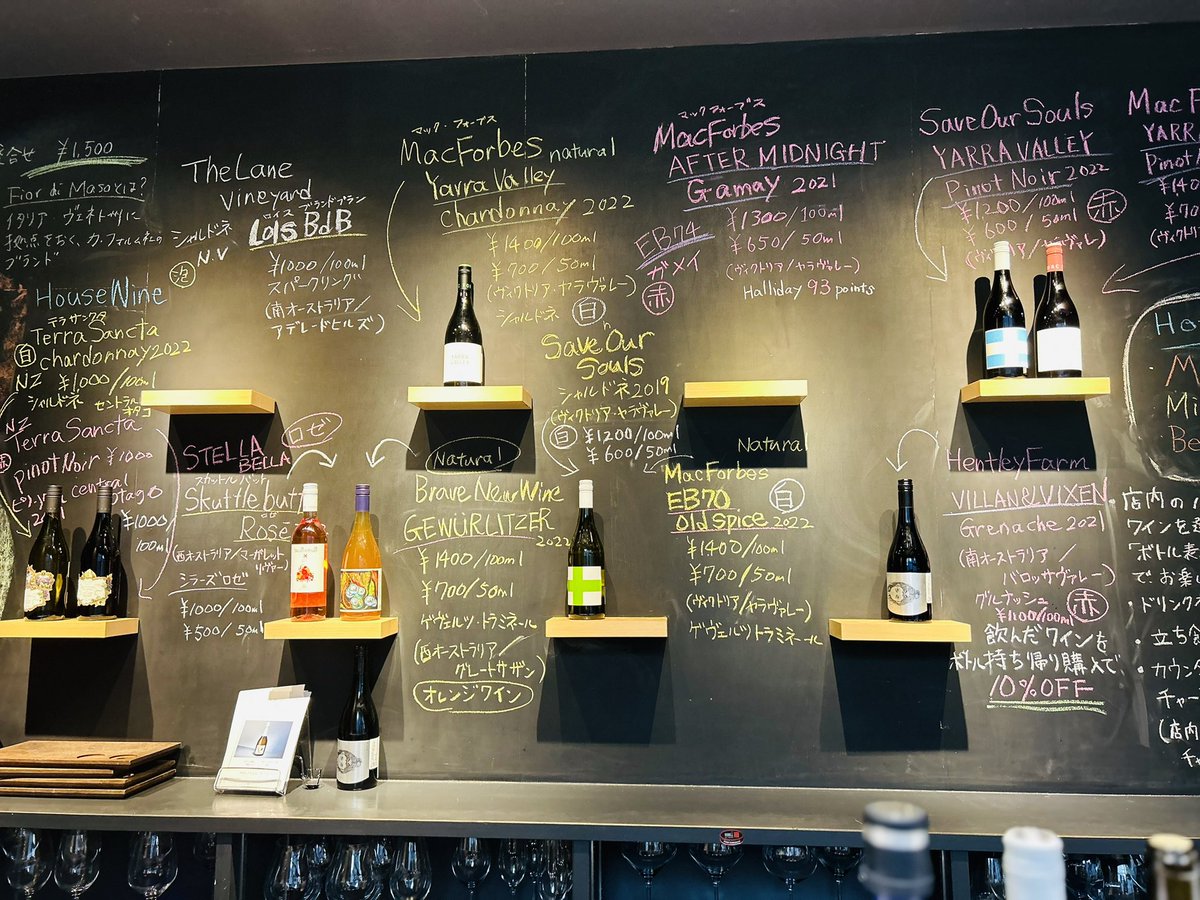 ¥1,500
Fior di Masoとは?
イタリア、ヴェネト州に
ブランド
House Wine
テラサンクタ
Terra Sancta
白 chardonnay 2022
NZ ¥1,000/100ml
シャルドネ セントラル
オタゴ
NZ
Terra Sancta
赤
pinot Noir ¥1000
central
otago
¥1000/
100ml
The Lane
Vineyard
ロイス ブランドブラン
Lois BdB
シャルドネ
N.V
泡
¥1000/100ml
スパークリング
(南オーストラリア/
アデレードヒルズ)
STELLA
BELLA
ロゼ
スカットルバット
Skuttlebutt
ロゼ
Rosē
(西オーストラリア/マーガレット
リヴァー)
シラーズロゼ
¥1000/100ml
¥500/50ml
マック・フォーブス
MacForbes natural
Yarra Valley
chardonnay 2022
¥1400/100ml
¥700/50ml
(ヴィクトリア・ヤラヴァレー)
シャルドネ 白
Save Our
Souls
シャルドネ2019
(ヴィクトリア・ヤラヴァレー)
白 ¥1200/100ml
¥600/50ml
Natural
Brave New Wine
GEWÜRLITZER
2022
¥1400/100ml
¥700/50ml
ゲヴェルツ・トラミネール
(西オーストラリア/
グレートサザン)
オレンジワイン
マックフォーブス
MacForbes
AFTER MIDNIGHT
Gamay 2021
¥1300/100ml
¥650/50ml
(ヴィクトリア/ヤラヴァレー)
Halliday 93 points
EB74
ガメイ
赤
Natural
MacForbes
EB70 白
old spice 2022
¥1400/100ml
¥700/50ml
(ヴィクトリア/ヤラヴァレー)
ゲヴェルツトラミネール
Save Our Souls
YARRA VALLEY
Pinot Noir 2022
¥1200/100ml
¥600/50ml
赤
(ヴィクトリア/ヤラヴァレ)
Hentley Farm
VILLAN&VIXEN
Grenache 2021
(南オーストラリア/
バロッサヴァレー)
グルナッシュ 赤
¥1100/100ml
飲んだワインを
ボトル持ち帰り購入で
10%OFF
Mac F
YARR
Pinot
¥140
¥70
(ヴィクト
He
M
Mi
Be
・店内の
ワインを
でお楽
・ドリンク
・立ち飲
・カウン
チャー
(店内
チャ